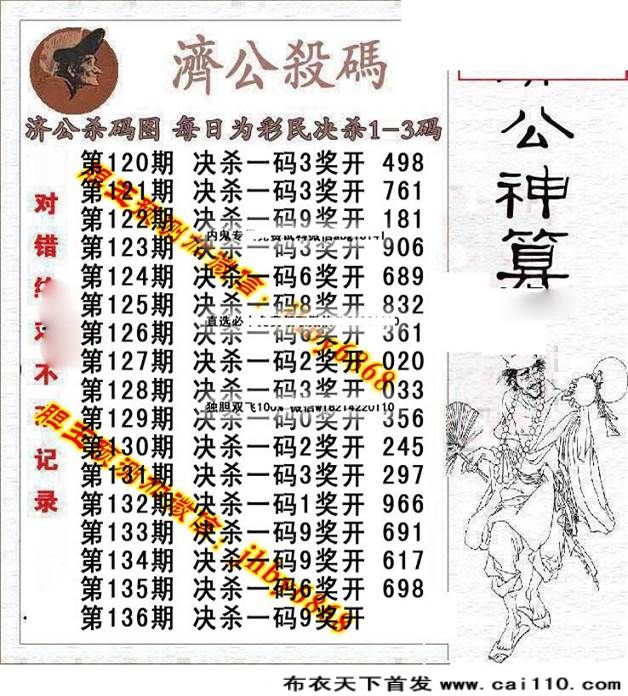 濟公殺碼
济公杀码图 每日为彩民决杀1-3码
第120期 决杀一码3奖开 498
第121期 决杀一码3奖开 761
第122期 决杀一码9奖开 181
第123期 决杀一码3奖开 906
第124期 决杀一码6奖开 689
第125期 决杀一码8奖开 832
第126期 决杀一码6奖开 361
第127期 决杀一码2奖开 020
第128期 决杀一码3奖开 033
第129期 决杀一码0奖开 356
第130期 决杀一码2奖开 245
第131期 决杀一码3奖开 297
第132期 决杀一码1奖开 966
第133期 决杀一码9奖开 691
第134期 决杀一码9奖开 617
第135期 决杀一码6奖开 698
第136期 决杀一码9奖开
对错
不
记录
胆王预测加微信：
胆王预测加微信：jhbp6868
内鬼专
直选必
独胆双飞100% 微信wf8214220110
公神算
布衣天下首发 www.cai110.com